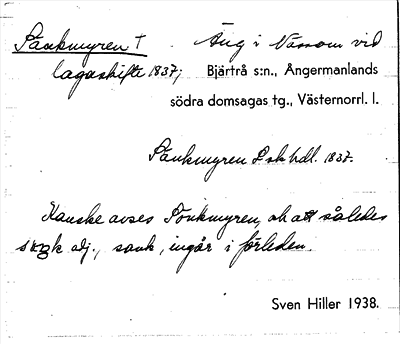 Sankmyren † Äng i Nässom vid
lagaskifte 1837; Bjärtrå s:n., Ångermanlands
södra domsagas tg., Västernorrl. l.
Sankmyren L sk hdl. 1837.
Kanske avses Sankmyren, och att således
adj., sank, ingår i förleden.
Sven Hiller 1938.